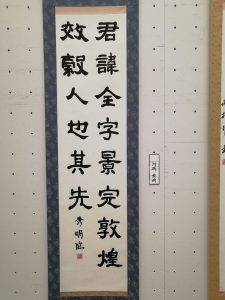 君諱全字景完敦煌
效穀人也其先
秀明臨